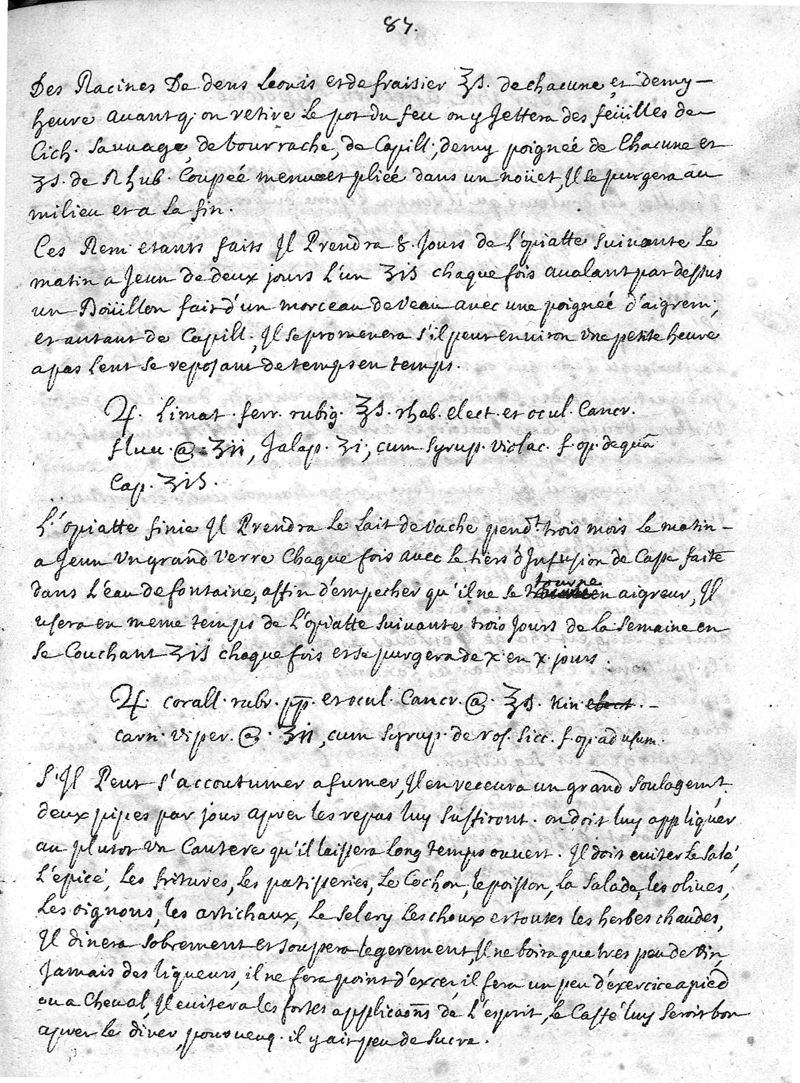 87.
Des Racines De dens Leonis et de fraisier ʒs. de chacune, et demy
heure avant q; on retire le pot du feu on y Jettera des feüilles de
Cich. Sauvage, de bourrache, de Capill; demy poignée de Chacune et
ʒs. de Rhub. Coupée menue et pliée dans un noüet, Il se purgera au
milieu et a la fin.
Ces Rem; etants faits Il Prendra 8. Jours de L'opiatte Suivante Le
matin a Jeun de deux jours L'un ʒis chaque fois avalant par dessus
un Boüillon fait d'un morceau de Veau avec une poignée d'aigrem;
et autant de Capill; Il se promenera s'il peut environ Une petite heure
a pas Lent se reposant de temps en temps.
♃. Limat. ferr. rubig. ʒs. rhab. elect. et ocul. Cancr.
fluu. @. ʒii, Jalap. ʒi, cum Syrup. violac. f. op. de quâ
Cap. ʒis.
L'opiatte finie Il Prendra Le Lait de Vache pendt. trois mois Le matin
a Jeun Un grand Verre Chaque fois avec le tiers d'Infusion de Casse faite
dans L'eau de fontaine, affin d'empecher qu'il ne se tourne en aigreur, Il
usera en meme temps de L'opiatte suivante trois Jours de la Semaine en
se Couchant ʒis chaque fois et se purgera de x en x jours.
♃. corall. rubr. pp. et ocul. Cancr. @. ʒs. Kin
carn. viper. @. ʒii, cum Syrup. de ros. sicc. f. op. ad usum.
S'Il Peut s'accoutumer a fumer, Il en recevra un grand Soulagemt,
deux pipes par jour aprer les repas luy Suffiront. on doit luy appliquer
au plutot Un Cautere qu'il laissera long temps ouvert. Il doit eviter Le Salé,
L'epicé, Les fritures, Les patisseries, Le Cochon, le poisson, la Salade, les olives,
Les oignons, les artichaux, Le Selery Les choux et toutes les herbes chaudes,
Il dinera Sobrement et Soupera legerement, Il ne boira que tres peu de Vin,
Jamais des liqueurs, il ne fera point d'excer, il fera un peu d'exercice a pied
ou a Cheval, Il evitera les fortes applicaons de L'esprit, le Caffé luy Seroit bon
aprer le diner, pourveuq. il y ait peu de Sucre.